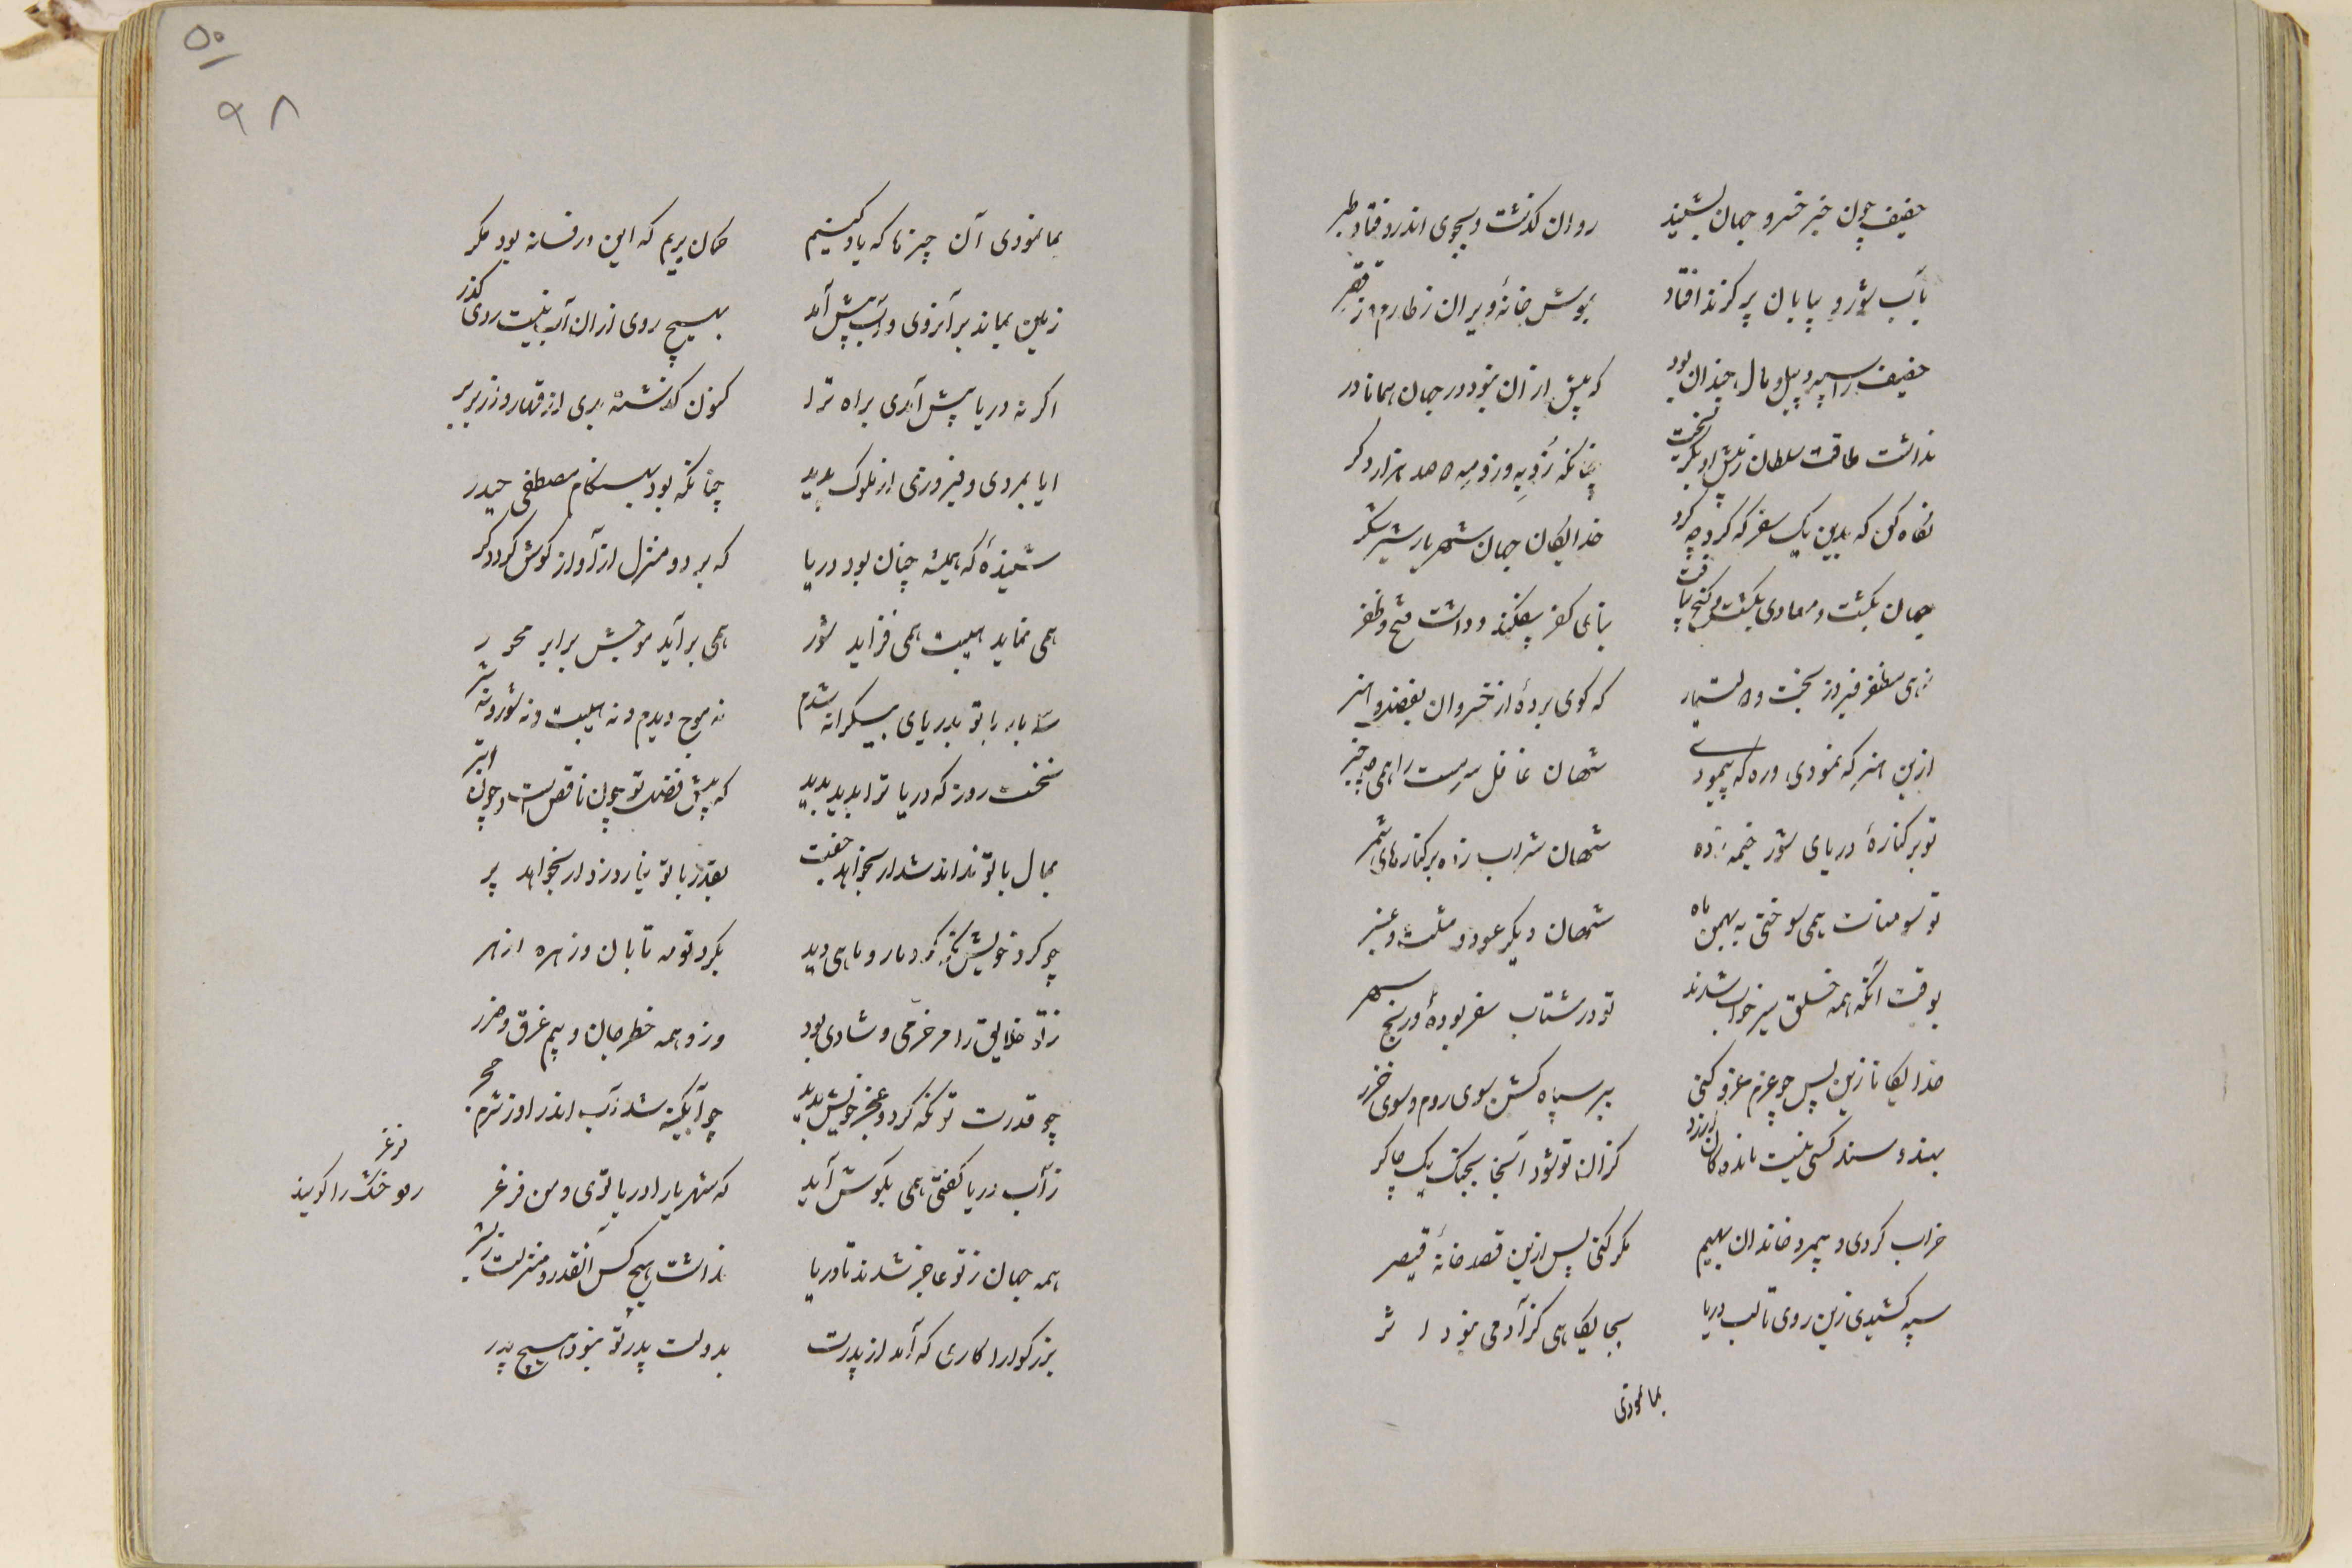 خفیف چون خبر خسرو جهان بشنید روان گذشت و بجوی اندر و فتاد طبر
بآب شور و بیابان پر گزند افتاد بتوش خانهٔ ویران ز طارم و ز
خفیف را سپه و پیل و مال چندان بود که بیش ازان نبود در جهان همانا در
نداشت طاقت سلطان ز پیش او بگریخت چنانکه زو به و زو مه ۵ صد هزار دگر
نگاه کن که بدین یک سفر که کرد چه کرد خدایگان جهان شهریار شیر شکر
جهان بگشت و معادی بکشت و گنج بیافت بنای کفر بیفکند و داشت فتح و ظفر
زهی مظفر فیروز بخت و که گوی بردهٔ از خسروان بفضل و هنر
ازین هنر که نمودی و ره که پیمودی شهان غافل سرمست را همی چه خبر
تو بر کنارهٔ دریای شور خیمه زده شهان شراب زده بر کنارهای شمر
تو سومنات همی سوختی به بهمن ماه شهان دیگر عود و مثلث و عنبر
بوقت آنکه همه خلق سیر خواب شدند تو در شتاب سفر بودهٔ و رنج سهر
خدایگانا زین پس چو عزم غزو کنی ببر سپاه کشن سوی روم و سوی خزر
بهند و سند کسی نیست مانده کان ارزد کزان تو شود آنجا بجنگ یک چاکر
خراب کردی و بیمرد خاندان بهیم مگر کنی پس ازین قصد خانهٔ قیصر
سپه کشیدی زین روی تا لب دریا بجایگاهی کز آدمی نبود اثر
بما نمودی
۵۰
۹۸
بما نمودی آن چیزها که یاد کنیم گمان بریم که این در فسانه بود مگر
زمین بماند بر آنروی و آب پیش آمد بهیچ روی ازان آب نیست روی گذر
اگر نه دریا پیش آمدی براه ترا کنون گذشته بدی از قمار و از بربر
ایا بمردی و فیروزی از ملوک پدید چنانکه بود بهنگام مصطفی حیدر
شنیدهٔ که همیشه چنان بود دریا که بر دو منزل از آواز گوش گردد کر
همی نماید هیبت همی فزاید شور همی برآید موجش برابر محور
سه بار با تو بدریای بیکرانه شدم نه موج دیدم و نه هیبت و نه شور و نه شر
نخست روز که دریا ترا بدید بدید که پیش فضل تو چون ناقص است و چون ابتر
بمال با تو نداند شد ار بخواهد جفت بقدر با تو نیارد زد ار بخواهد بر
چو گرد خویش نگه کرد مار و ماهی دید بگرد تو مه تابان و زهره ازهر
ز تو خلایق را مر خرمی و شادی بود وز و همه خطر جان و بیم غرق و ضرر
چو قدرت تو نگه کرد و عجز خویش بدید چو آبگینه شد آب اندر او ز شرم حجر
ز آب دریا گفتی همی بگوش آید که شهریارا دریا توئی و من فرغر
فرغر
رود خشک را گویند
همه جهان ز تو عاجز شدند تا دریا نداشت هیچ کس آنقدر و منزلت ز بشر
بزرگوارا کاری که آمد از پدرت بدولت پدر تو نبود هیچ پدر